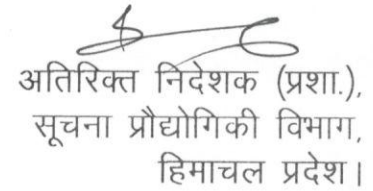 अतिरिक्त निदेशक (प्रशा.),
सूचना प्रौद्योगिकी विभाग,
हिमाचल प्रदेश।